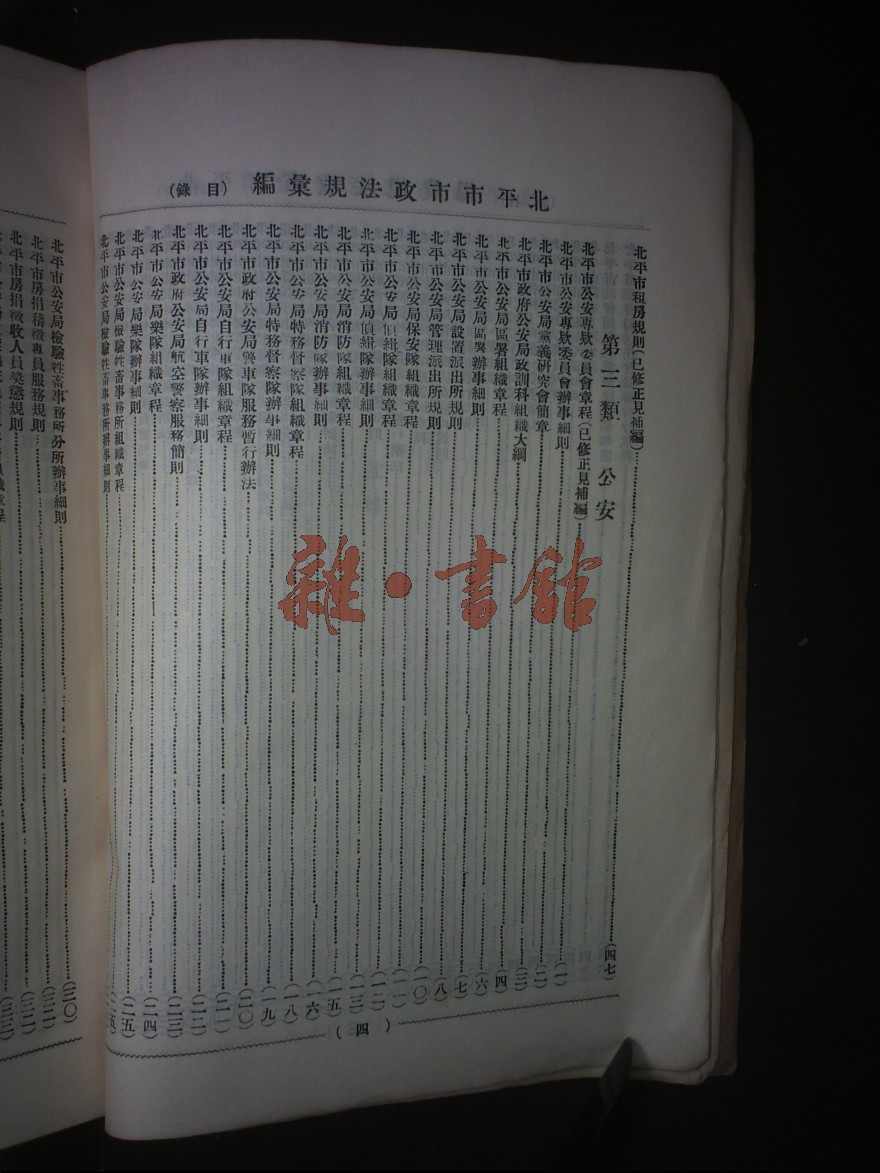 北平市市政法規彙編（目錄）
北平市租房規則（已修正見補編）（四七）
第三類　公安
北平市公安專欵委員會章程（已修正見補編）（一）
北平市公安專欵委員會辦事細則（一）
北平市公安局黨義研究會簡章（二）
北平市政府公安局政訓科組織大綱（三）
北平市公安局區署組織章程（四）
北平市公安局區署辦事細則（六）
北平市公安局設置派出所規則（七）
北平市公安局管理派出所規則（八）
北平市公安局保安隊組織章程（一〇）
北平市公安局偵緝隊組織章程（一一）
北平市公安局偵緝隊辦事細則（一二）
北平市公安局消防隊組織章程（一三）
北平市公安局消防隊辦事細則（一五）
北平市公安局特務督察隊組織章程（一六）
北平市公安局特務督察隊辦事細則（一八）
北平市政府公安局警車隊服務暫行辦法（一九）
北平市公安局自行車隊組織章程（二〇）
北平市公安局自行車隊辦事細則（二一）
北平市政府公安局航空警察服務簡則（二二）
北平市公安局樂隊組織章程（二三）
北平市公安局樂隊辦事細則（二四）
北平市公安局檢驗牲畜事務所組織章程（二五）
北平市公安局檢驗牲畜事務所辦事細則（二五）
（四）
北平市公安局檢驗牲畜事務所分所辦事細則（三〇）
北平市房捐稽徵專員服務規則
北平市房捐徵收人員獎懲規則
雜·書館